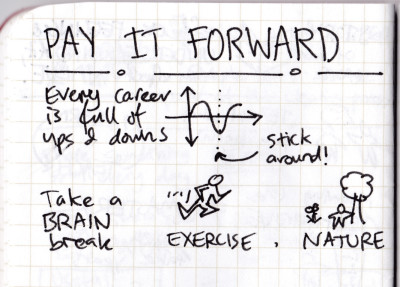 PAY IT FORWARD
Every career
is full of
ups & downs
stick
around!
Take a
BRAIN
break
EXERCISE, NATURE